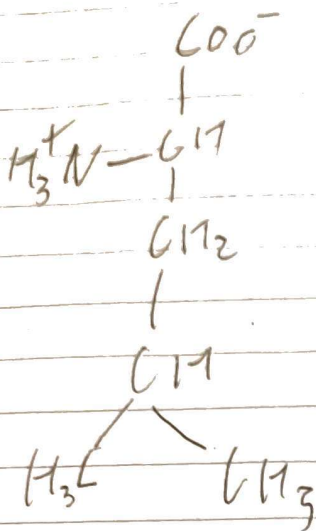 COO⁻
H₃⁺N—CH
CH₂
CH
H₃C CH₃